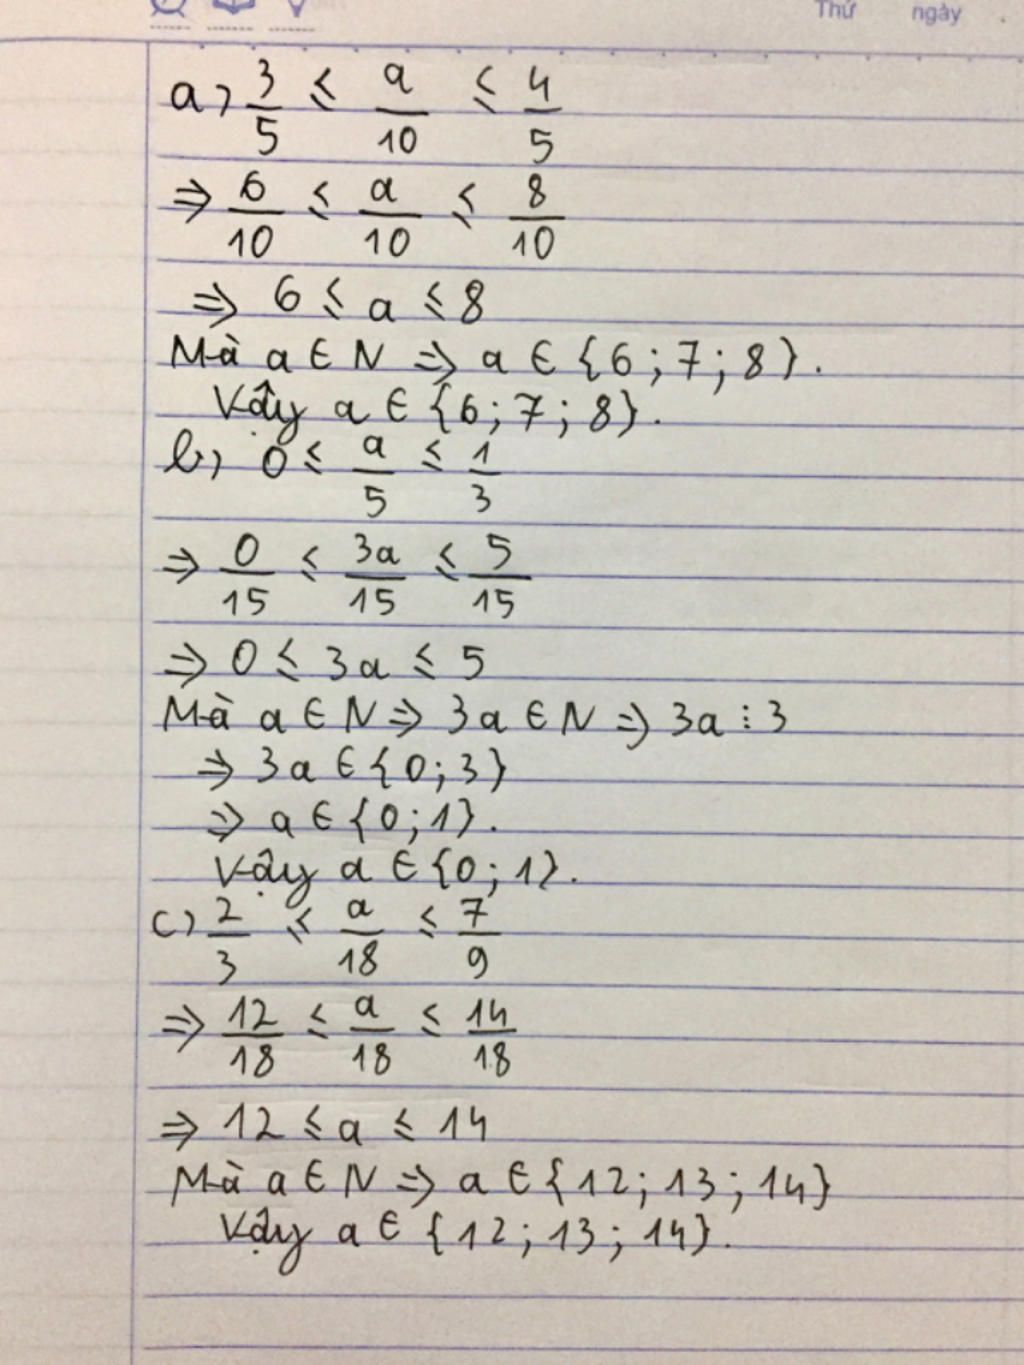 Thứ ngày
a, 3/5 ≤ a/10 ≤ 4/5
⇒ 6/10 ≤ a/10 ≤ 8/10
⇒ 6 ≤ a ≤ 8
Mà a ∈ N ⇒ a ∈ {6; 7; 8}.
Vậy a ∈ {6; 7; 8}.
b, 0 ≤ a/5 ≤ 1/3
⇒ 0/15 ≤ 3a/15 ≤ 5/15
⇒ 0 ≤ 3a ≤ 5
Mà a ∈ N ⇒ 3a ∈ N ⇒ 3a ⋮ 3
⇒ 3a ∈ {0; 3}
⇒ a ∈ {0; 1}.
Vậy a ∈ {0; 1}.
c) 2/3 ≤ a/18 ≤ 7/9
⇒ 12/18 ≤ a/18 ≤ 14/18
⇒ 12 ≤ a ≤ 14
Mà a ∈ N ⇒ a ∈ {12; 13; 14}
Vậy a ∈ {12; 13; 14}.